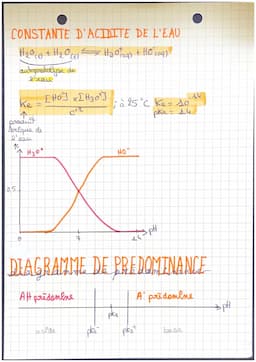 CONSTANTE D'ACIDITE DE L'EAU
H₂O(l) + H₂O(l) ⇌ H₃O⁺(aq) + HO⁻(aq)
autoprotolyse de l'eau
Ke = [HO⁻] × [H₃O⁺] / c°² ; à 25°C Ke = 10⁻¹⁴
pKe = 14
produit ionique de l'eau
H₃O⁺ HO⁻
0,5
0 7 14 pH
DIAGRAMME DE PREDOMINANCE
diagramme de prédominance
AH prédomine A⁻ prédomine
pH
pKa
acide base